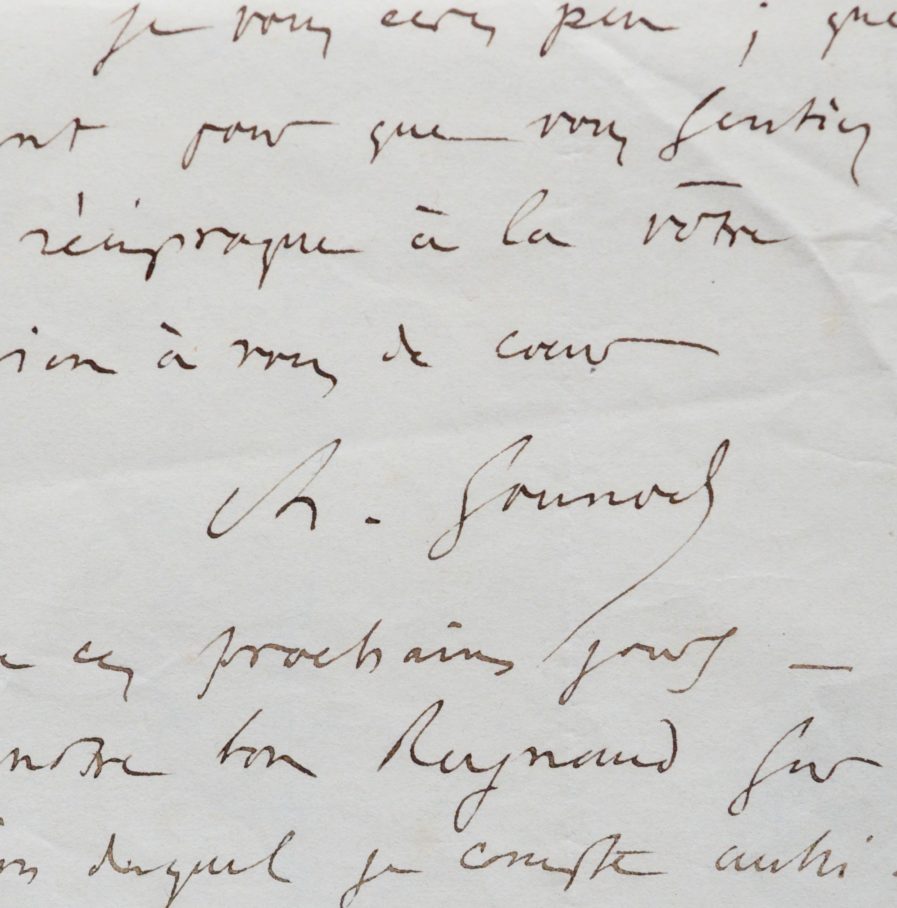 je vous écris peu ; que
nt pour que vous sentiez
réciproque à la vôtre
sion à vous de coeur
Ch. Gounod
ces prochains jours —
notre bon Reynaud sur
duquel je compte aussi.